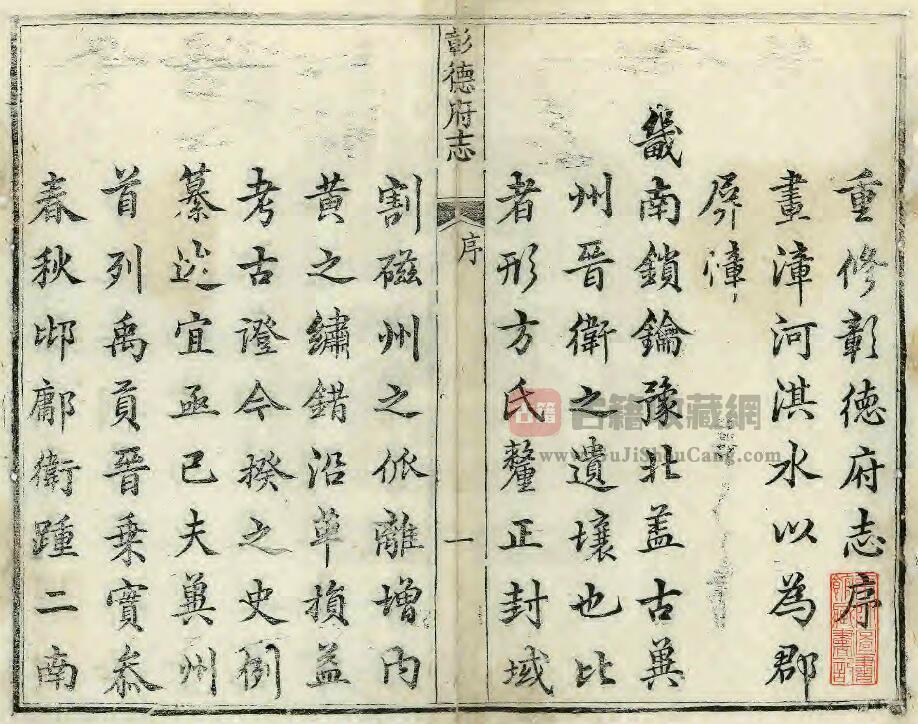 重修彰德府志序
畫漳河淇水以為郡
屏漳
畿南鎖鑰豫北盖古冀
州晉衛之遺壤也比
者形方氏釐正封域
彰德府志
序
一
割磁州之仳離增内
黄之繡錯沿革損益
考古證今揆之史例
纂述宜亟已夫冀州
首列禹貢晉乗實叅
春秋邶鄘衛踵二南
古籍 古籍收藏網
www.GuJiShouCang.com